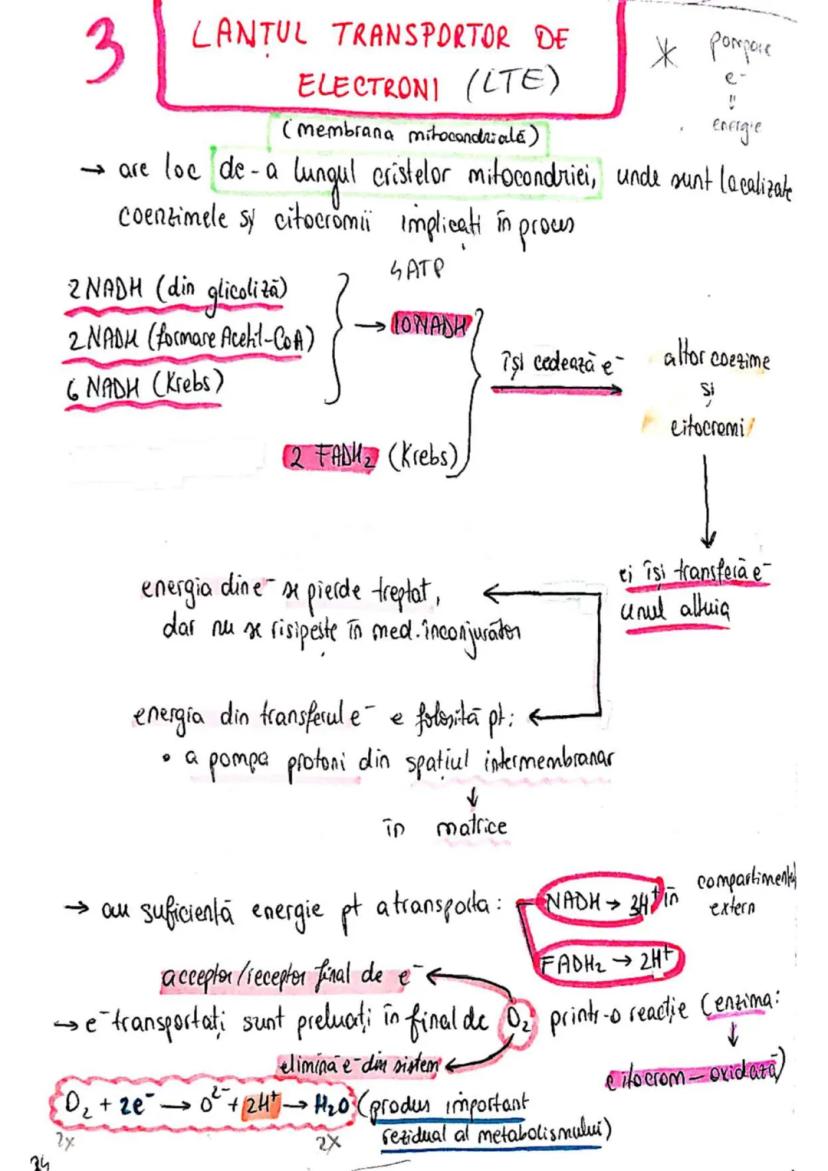 3
LANȚUL TRANSPORTOR DE
ELECTRONI (LTE)
* pompare
e-
"
energie
(membrana mitocondrială)
→ are loc de-a lungul cristelor mitocondriei, unde sunt localizate
coenzimele și citocromii implicați în proces
4ATP
2NADH (din glicoliză)
2NADH (formare Acetil-CoA)
6 NADH (Krebs)
→ 10NADH
2 FADH₂ (Krebs)
își cedează e⁻
altor coezime
și
citocromi
ei își transferă e⁻
unul altuia
energia din e⁻ se pierde treptat,
dar nu se risipește în med. înconjurător
energia din transferul e⁻ e folosită pt:
• a pompa protoni din spațiul intermembranar
↓
în matrice
→ au suficientă energie pt a transporta:
NADH → 3H⁺ în compartimentul
extern
FADH₂ → 2H⁺
acceptor/receptor final de e⁻
→ e⁻ transportați sunt preluați în final de O₂ printr-o reacție (enzima:
↓
citocrom-oxidază)
elimină e⁻ din sistem
O₂ + 2e⁻ → O²⁻ + 2H⁺ → H₂O (produs important
rezidual al metabolismului)
2x 2x
34